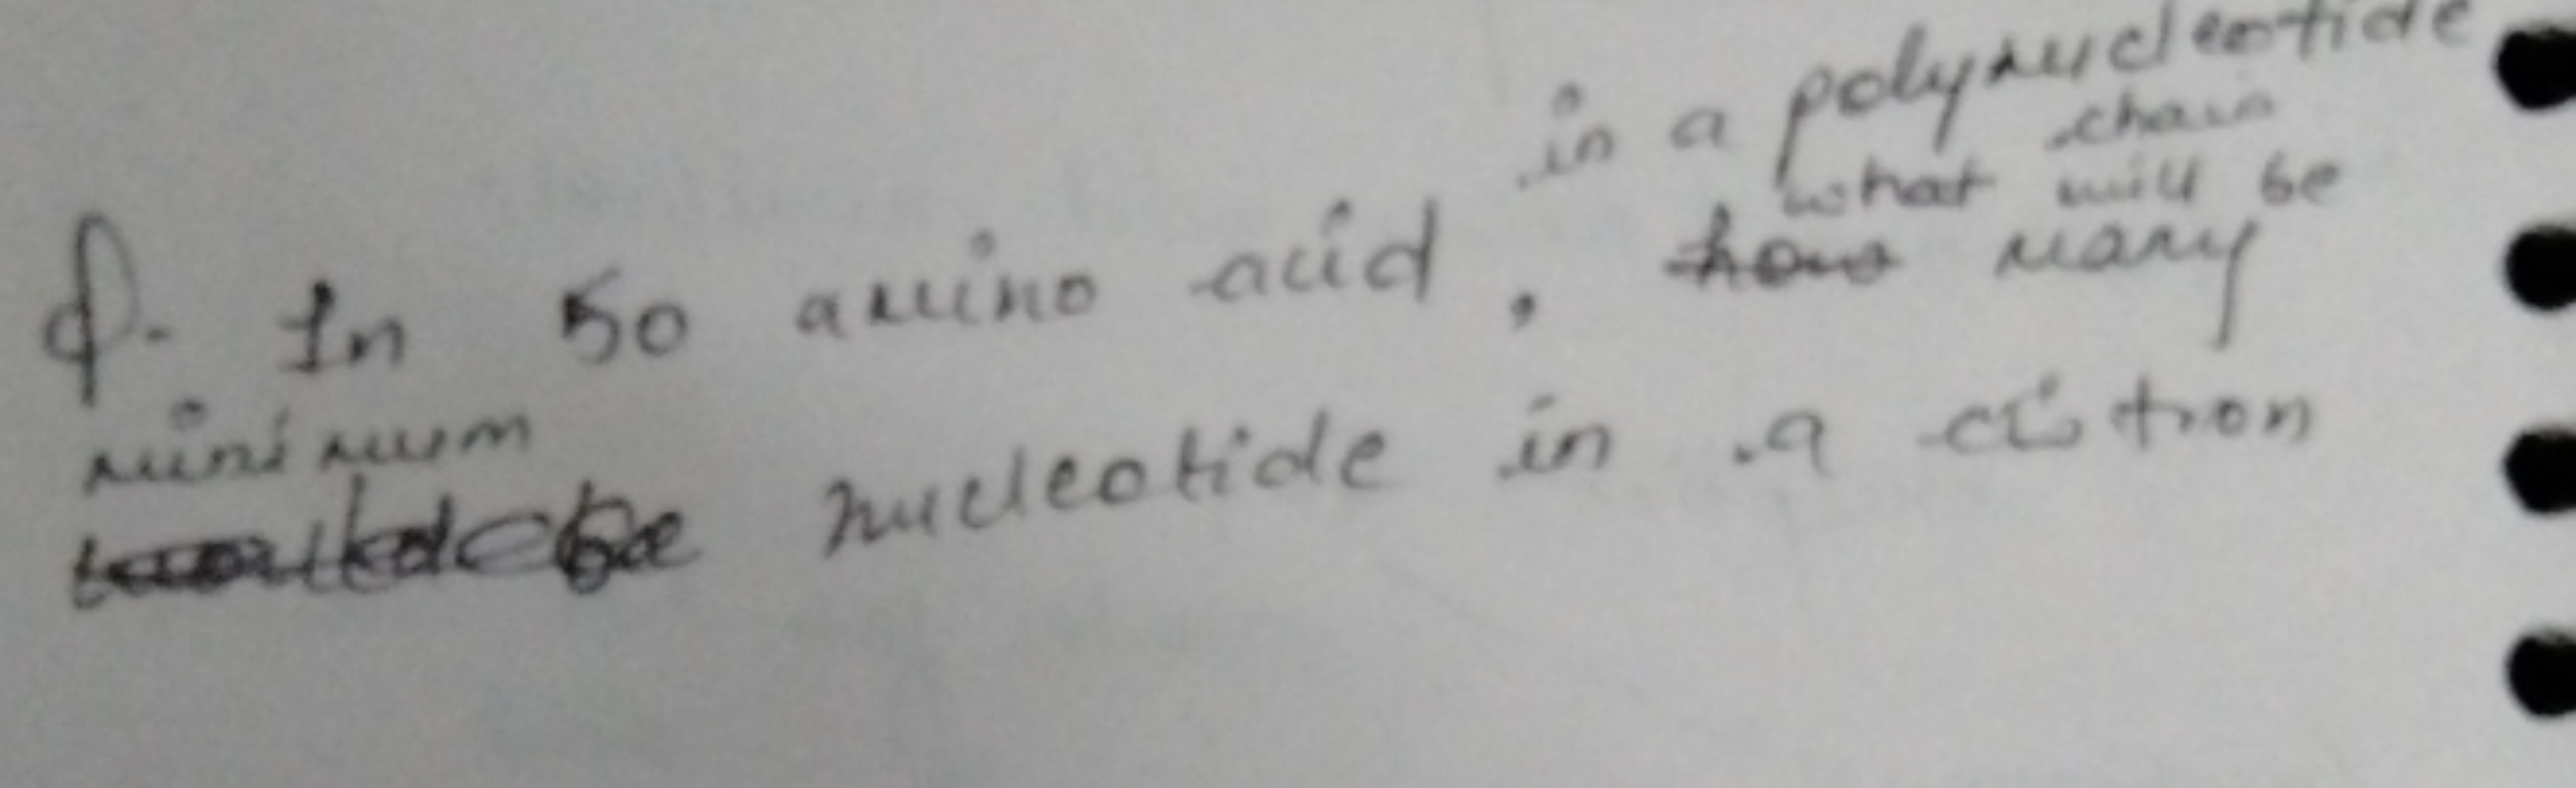 in a polynucleotide
chain
what will be
Q. In 50 amino acid, how many
minimum
nucleotide in a cistron